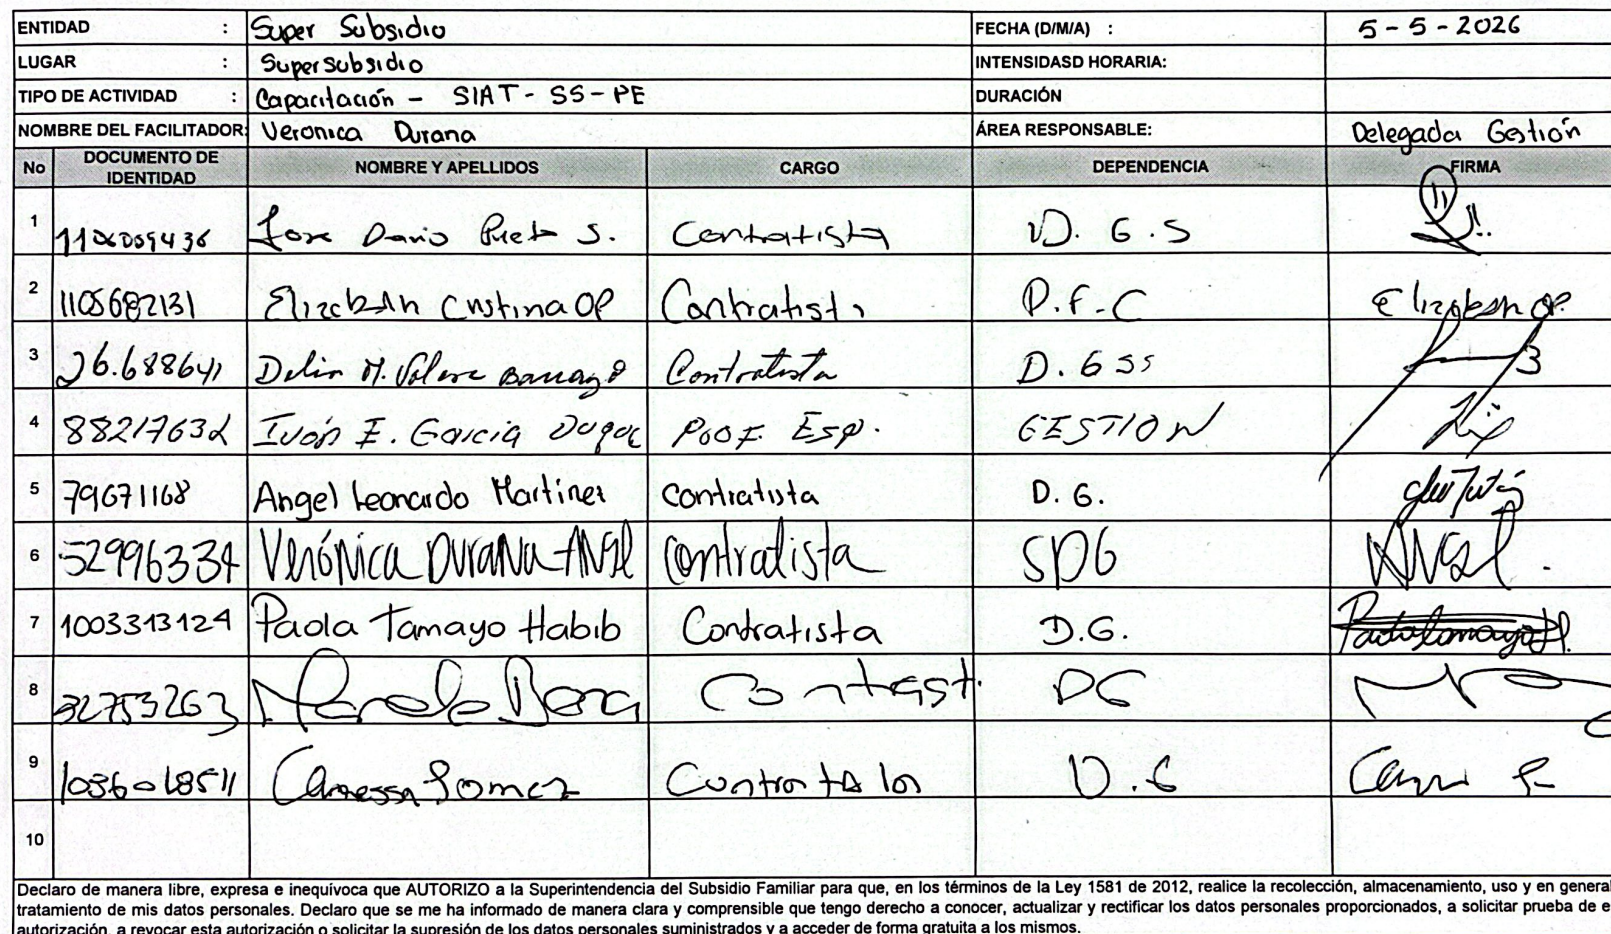 ENTIDAD : Super Subsidio FECHA (D/M/A) : 5-5-2026
LUGAR : Supersubsidio INTENSIDASD HORARIA:
TIPO DE ACTIVIDAD : Capacitación - SIAT-SS-PE DURACIÓN
NOMBRE DEL FACILITADOR: Veronica Durana ÁREA RESPONSABLE: Delegada Gestión
No DOCUMENTO DE IDENTIDAD NOMBRE Y APELLIDOS CARGO DEPENDENCIA FIRMA
1 Jose Dario Prieto S. Contratista D. G. S
2 1105682131 Elizabeth Cristina OP Contratista D.F.C Elizabeth OP.
3 26.688641 Contratista D. GSS
4 88217632 Iván E. García Duque Prof. Esp. GESTION
5 79671168 Angel Leonardo Martinez contratista D. G.
6 52996334 Verónica Durana Angel contratista SDG Angel.
7 1003313124 Paola Tamayo Habib Contratista D.G. Paola Tamayo H.
8 32753263 Contrast. DG
9 Gomez D.G
10
Declaro de manera libre, expresa e inequívoca que AUTORIZO a la Superintendencia del Subsidio Familiar para que, en los términos de la Ley 1581 de 2012, realice la recolección, almacenamiento, uso y en general
tratamiento de mis datos personales. Declaro que se me ha informado de manera clara y comprensible que tengo derecho a conocer, actualizar y rectificar los datos personales proporcionados, a solicitar prueba de e
autorización, a revocar esta autorización o solicitar la supresión de los datos personales suministrados y a acceder de forma gratuita a los mismos.